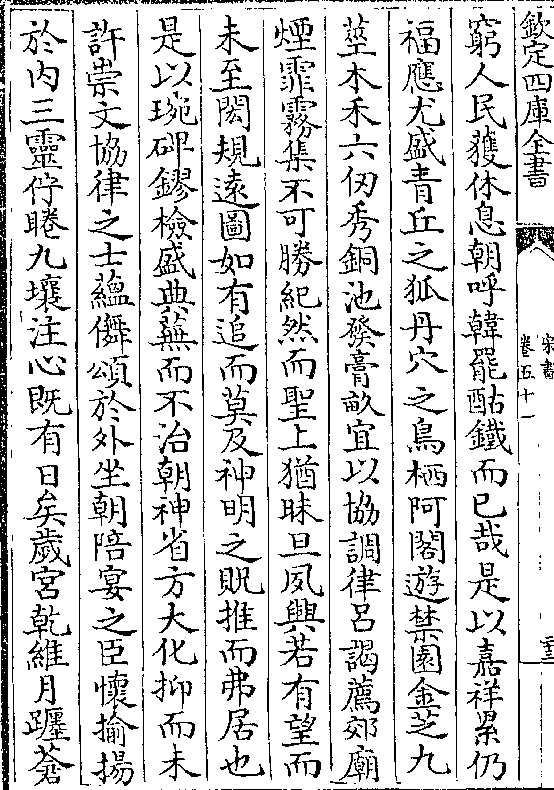 欽定四庫全書
宋書
卷五十一
窮人民獲休息朝呼韓罷酤鐵而已哉是以嘉祥累仍
福應尤盛青丘之狐丹穴之鳥栖阿閣遊禁園金芝九
莖木禾六仞秀銅池發膏畝宜以協調律呂謁薦郊廟
煙霏霧集不可勝紀然而聖上猶昧旦夙興若有望而
未至閎規遠圖如有追而莫及神明之貺推而弗居也
是以琬碑鏐檢盛典蕪而不治朝神省方大化抑而未
許崇文協律之士蘊儛頌於外坐朝陪宴之臣懷揄揚
於内三靈佇睠九壤注心既有日矣歲宮乾維月躔蒼